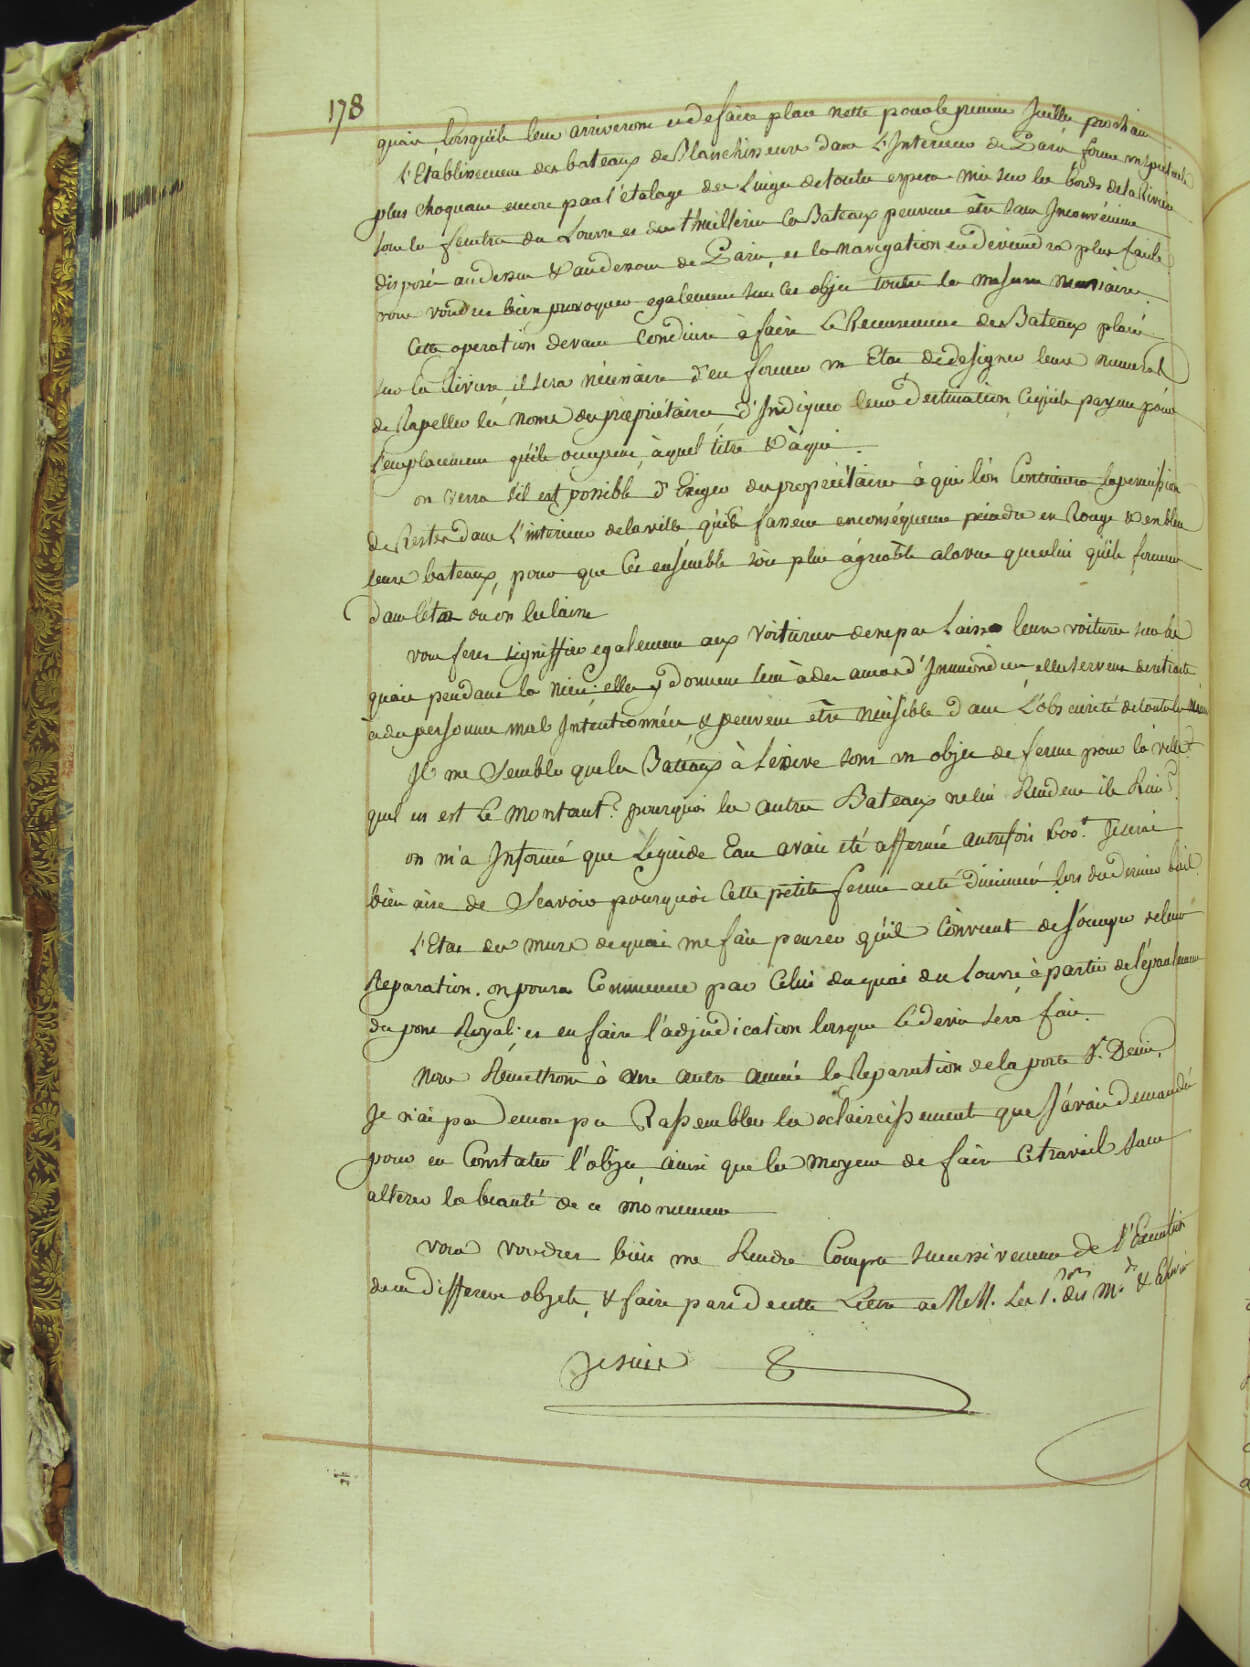 178
quais lorsqu'ils leur arriveront et de faire place nette pour le premier Juillet prochain
L'Etablissement des bateaux de Blanchisseurs dans L'Interieur de Paris forme un spectacle
plus choquant encore par l'étalage des Linges de toutes especes mis sur les bords de la Riviere
sous les fenêtres du Louvre et des thuilleries Ces Bateaux peuvent être sans Inconvénient
disposés au dessus & au dessous de Paris, et la navigation en deviendra plus facile
vous voudrez bien provoquer egalement sur ces objets toutes les mesures necessaires.
Cette operation devant Conduire à faire le Recensement des Bateaux placés
sur la Riviere, il sera nécessaire d'en former un Etat de designer leurs numeros
de Rapeller les noms des propriétaires d'Indiquer leur destination, ce qu'ils payent pour
l'emplacement qu'ils occupent, à quel titre & à qui.
on verra s'il est possible d'Exiger des propriétaires à qui l'on Continuera la permission
de Rester dans l'interieur de la ville qu'ils fassent en conséquence peindre en Rouge & en bleu
leurs bateaux, pour que cet ensemble soit plus agréable a la vue que celui qu'ils forment
dans l'état où on les laisse
vous ferez signiffier egalement aux Voituriers de ne pas Laisser leurs voitures sur les
quais pendant la nuit; elles y donnent lieu à des amas d'Immondices elles servent de retraite
à des personnes mal Intentionnées & peuvent être nuisibles dans L'obscurité de toutes les
Il me Semble que les Bateaux à Lessive sont un objet de ferme pour la ville?
quel en est le montant? pourquoi les autres Bateaux ne lui Rendent ils Rien?
on m'a Informé que Leguide Eau avait été affermé autrefois 600.# Je serai
bien aise de Sçavoir pourquoi Cette petite ferme a eté diminuée lors du dernier bail
L'Etat des murs de quai me fait penser qu'il Convient de s'occuper de leur
Reparation. on poura Commencer par Celui du quai du Louvre à partir de l'épaulement
du pont Royal; et en faire l'adjudication lorsque le devis sera fait.
Nous Remettrons à une autre année la Reparation de la porte St. Denis,
Je n'ai pas encore pu Rassembler les eclaircissements que J'avais demandés
pour en Constater l'objet, ainsi que les moyens de faire ce travail sans
alterer la beauté de ce monument
vous voudrez bien me Rendre Compte successivement de L'Execution
de ces differens objets, & faire part de cette Lettre a MM. Les & Echevins
Je suis &